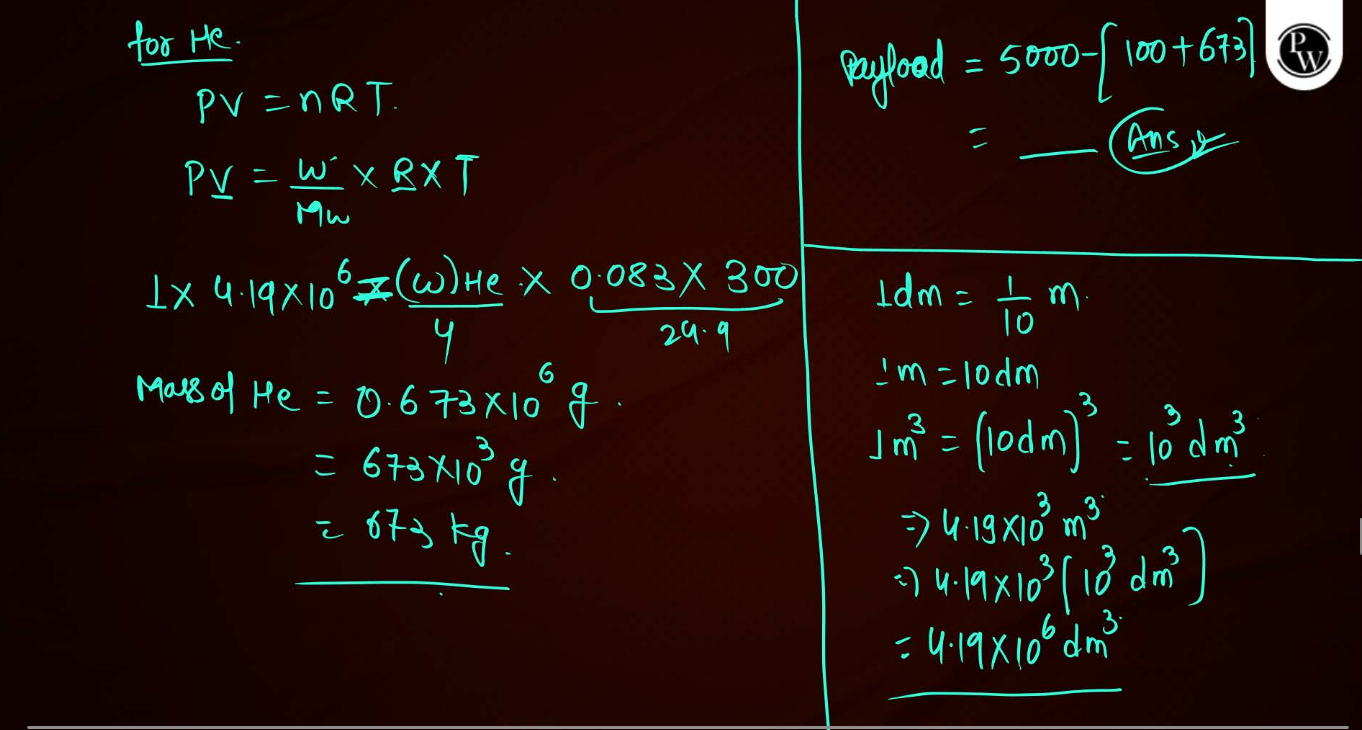 for He.
PV = nRT.
PV = W/Mw × R × T
1 × 4.19 × 10⁶ = (w)He/4 × 0.083 × 300
24.9
Mass of He = 0.673 × 10⁶ g.
= 673 × 10³ g.
= 673 kg.
Payload = 5000 - [100 + 673]
= __ Ans
PW
1dm = 1/10 m.
1m = 10dm
1m³ = (10dm)³ = 10³ dm³
⇒ 4.19 × 10³ m³
⇒ 4.19 × 10³ [10³ dm³]
= 4.19 × 10⁶ dm³